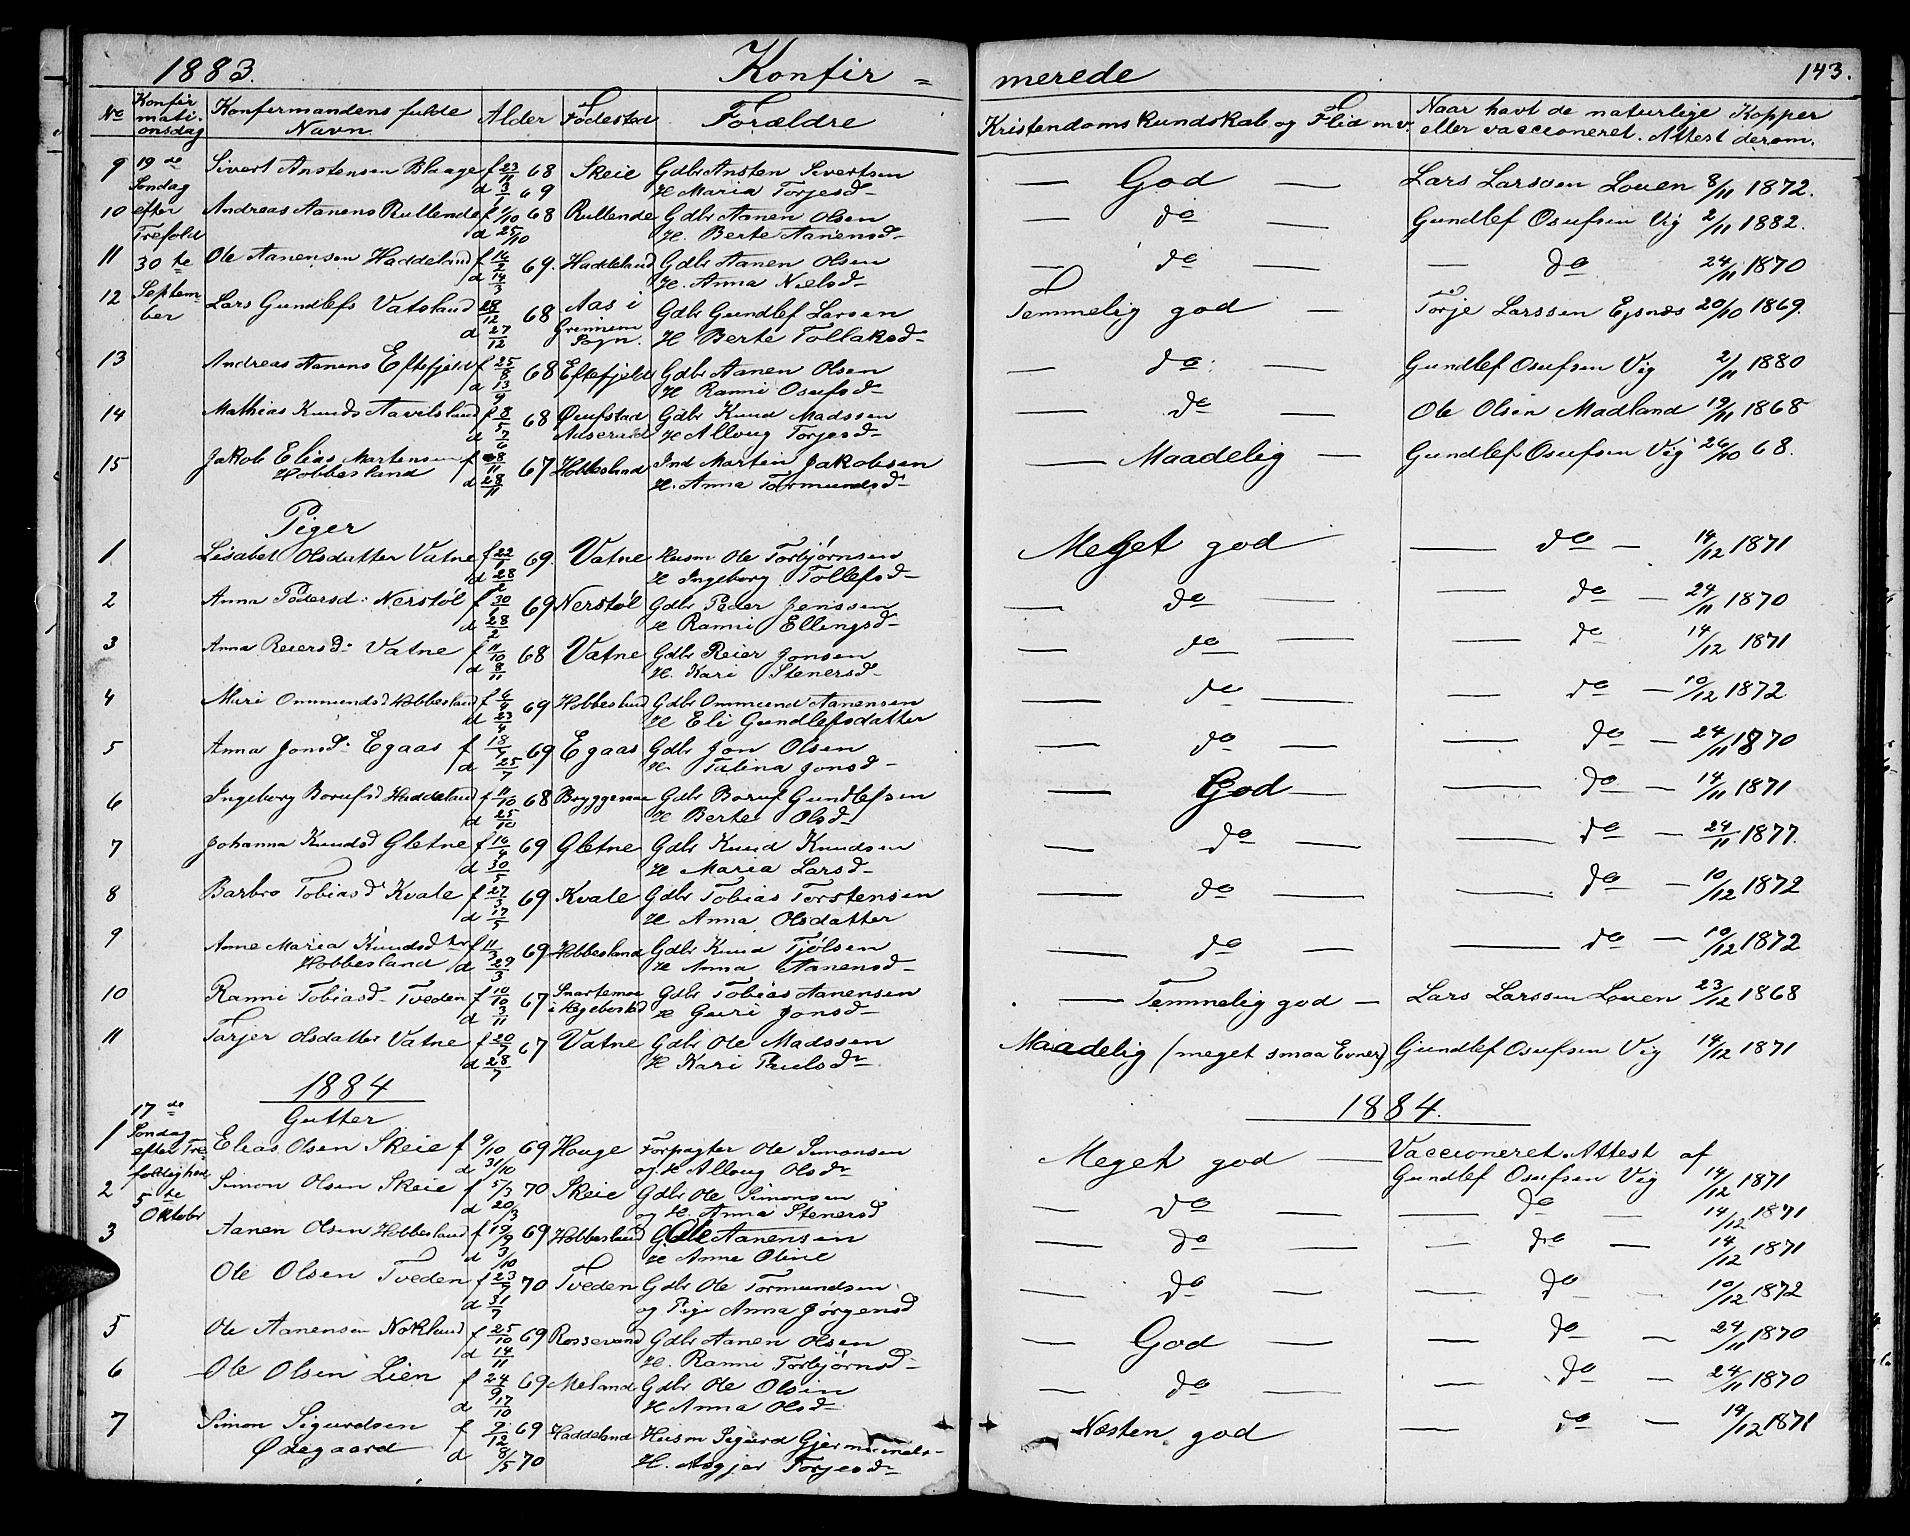 1883. Konfir = merede 143.
No Konfirmati-onsdag Konfirmandens fulde Navn Alder Fødested Forældre Kristendoms kundskab og Flid m.v. Naar havt de naturlige Kopper eller vaccioneret. Attest derom.
9 19de Sivert Anstensen Blaage f 23/11 68 Skeie Gdbr Ansten Sivertsen — God — Lars Larssen Louen 8/11 1872.
Søndag d 3/1 69 H Maria Torjesd-
10 efter Andreas Aanens Rullende f 1/10 68 Rullende Gdbr Aanen Olsen — do — Gundlef Osufsen Vig 2/11 1882.
Trefold d 25/10 H. Berte Aanensd-
11 30te Ole Aanensen Haddeland f 16/2 69. Haddeland Gdbr Aanen Olsen — do — — do 24/11 1870
d 14/3 H. Anna Nielsd-
12 September Lars Gundlefs Vatsland 28/12 68 Aas i Gdbr Gundlef Larsen Temmelig god — Torje Larssen Ejsnæs 20/10 1869.
d 27/12 Grennem Sogn. H Berte Tollaksd-
13 Andreas Aanens Eftefjeld f 25/8 68 Eftefjeld Gdbr Aanen Olsen — do — Gundlef Osufsen Vig 2/11 1880
d 13/9 H Ranni Osufsd-
14 Mathias Knuds Aavelsland f 8/5 68 Øiufstad Gdbr Knud Madssen — do — Ole Olsen Madland 19/11 1868
d 7/6 H Alloug Torjesd-
15 Jakob Elias Martensen f 8/11 67 Hobbesland Ind Martin Jakobsen — Maadelig — Gundlef Osufsen Vig 26/10 68.
Hobbesland d 28/11 H. Anna Tormundsd-
Piger
1 Lisabet Olsdatter Vatne f 22/1 69. Vatne Husm Ole Torbjørnsen Meget god — do — 14/12 1871
d 28/2 H Ingeborg Tollefsd-
2 Anna Pedersd: Nerstøl f 30/1 69 Nerstøl Gdbr Peder Jenssen — do — — do — 24/11 1870
d 28/2 H Ranni Ellingsd-
3 Anna Reiersd: Vatne f 11/10 68 Vatne Gdbr Reier Jonsen — do — — do 14/12 1871
d 8/11 H. Kari Stenersd-
4 Mari Ommundsd Hobbesland f 6/4 69 Hobbesland Gdbr Ommund Aanensen — do — — do — 10/12 1872.
d 23/4 H Eli Gundlefsdatter
5 Anna Jonsd: Egaas f 18/7 69 Egaas Gdbr Jon Olsen — do — — do — 24/11 1870
d 25/7 H. Talina Jonsd-
6 Ingeborg Borufsd Haddeland f 11/10 68 Bryggesaa Gdbr Boruf Gundlefsen — God — — do — 14/11 1871
d 25/10 H Berte Olsd-
7 Johanna Knudsd Gletne f 16/4 69 Gletne Gdbr Knud Knudsen — do — — do — 24/11 1877.
d 30/5 H Maria Larsd-
8 Barbro Tobiasd Kvale f 27/3 69 Kvale Gdbr Tobias Torstensen — do — — do — 10/12 1872
d 17/5 H Anna Olsdatter
9 Anne Maria Knudsdtr f 11/3 69 Hobbesland Gdbr Knud Tjølsen — do — — do — 10/12 1872
Hobbesland d 29/3 H Anna Aanensd-
10 Ranni Tobiasd- Tveden f 10/10 67 Snartemoe Gdbr Tobias Aanensen — Temmelig god — Lars Larssen Louen 23/12 1868
d 3/11 i Hægebostad H Guri Jonsd-
11 Torjer Olsdatter Vatne f 20/7 67 Vatne Gdbr Ole Madssen Maadelig (meget smaa Evner) Gundlef Osufsen Vig 14/12 1871
d 28/7 H Kari
1884 1884.
17de Gutter
1 Søndag Elias Olsen Skeie f 9/10 69 Houge Forpagter Ole Simonsen Meget god — Vaccioneret. Attest af
efter Tre- d 31/10 og H Alloug Olsdr Gundlef Osufsen Vig 14/12 1871
2 foldighed Simon Olsen Skeie f 5/3 70 Skeie Gdbr Ole Simonsen — do — — do — 14/12 1871
5te d 20/3 og H. Anna Stenersd
3 Oktober Aanen Olsen Hobbesland f 19/9 69 Hobbesland G Ole Aanensen — do — — do — 14/12 1871
d 3/10 H Anne Oline
Ole Olsen Tveden f 23/7 70 Tveden Gdbr Ole Tormundsen — do — do 10/12 1872
d 31/7 og Pige Anna Jørgensd
5 Ole Aanensen Nøkland f 25/10 69 Rossevand Gdbr Aanen Olsen — God — — do — 24/11 1870
d 14/11 H. Ranni Torbjørnsd-
6 Ole Olsen Lien f 24/9 69 Meland Gdbr Ole Olsen — do — — do — 24/11 1870
d 17/10 H Anna Olsd-
7 Simon Sigurdsen f 9/12 69 Haddeland Husm Sigurd Gjermunds- Næsten god — do — 14/12 1871
Ødegaard d 8/5 70 H. Asgjer Torjesd-